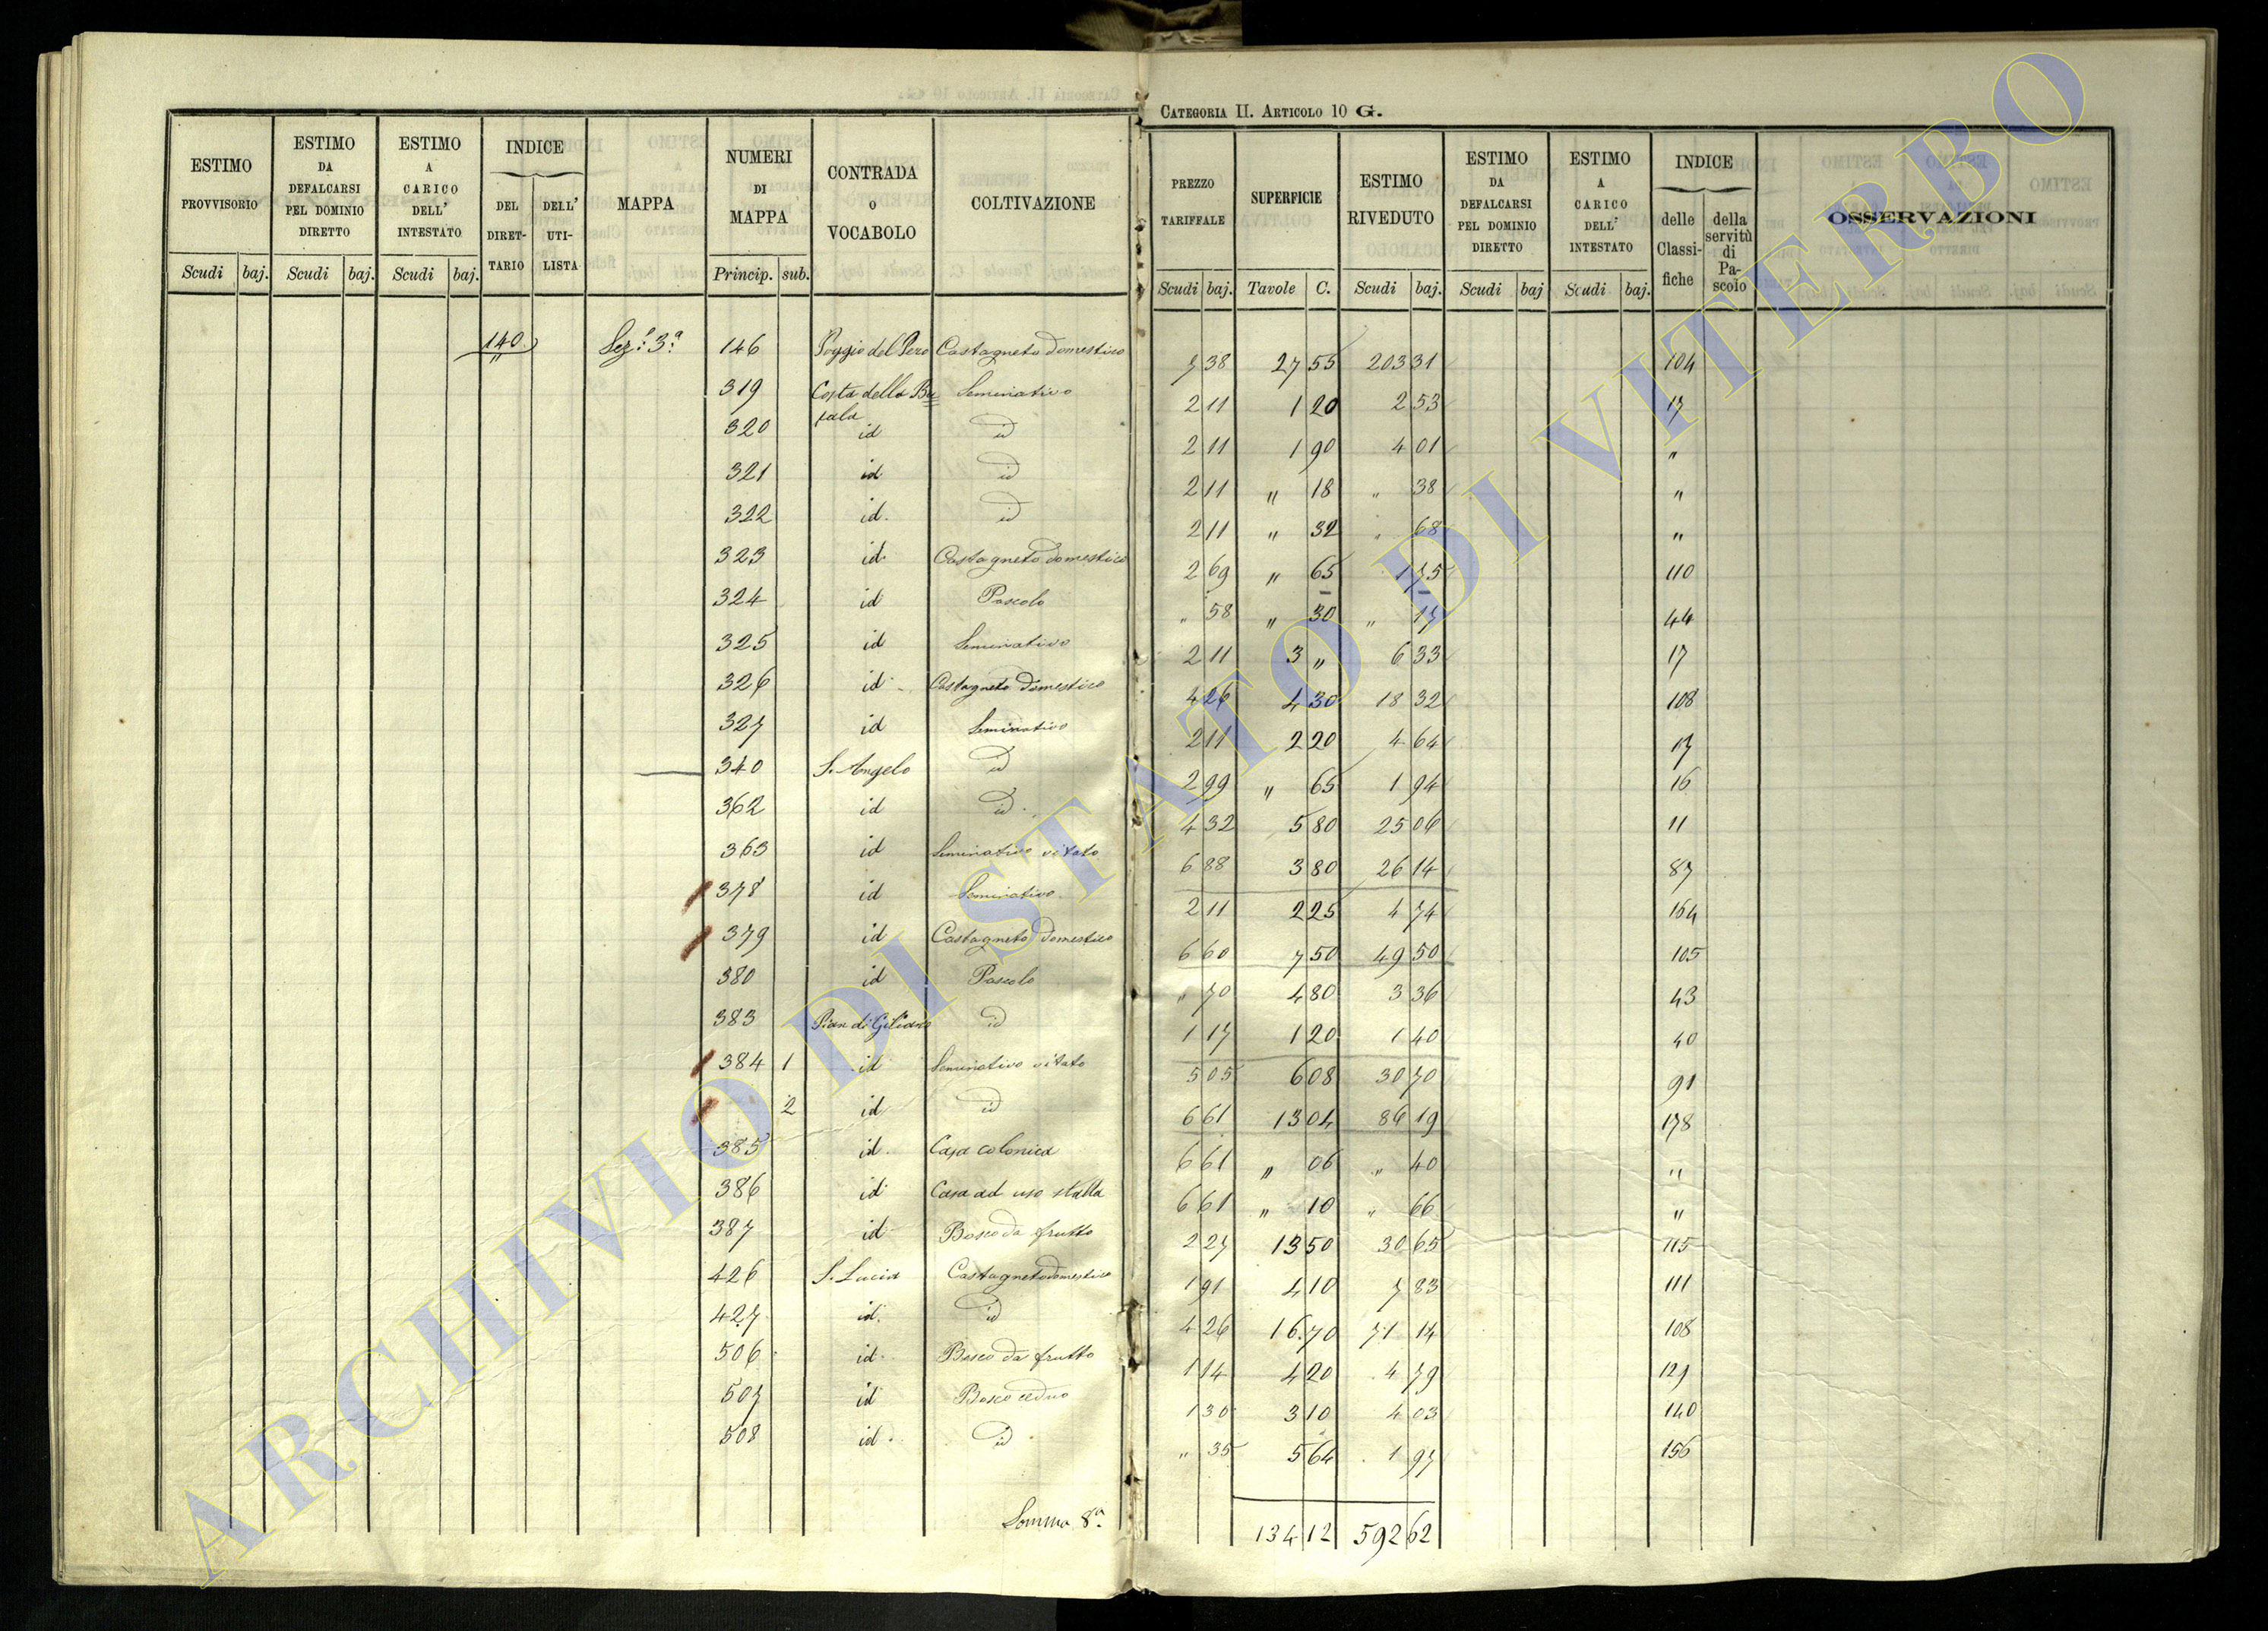 CATEGORIA II. ARTICOLO 10 G.
ESTIMO PROVVISORIO Scudi baj.
ESTIMO DA DEFALCARSI PEL DOMINIO DIRETTO Scudi baj.
ESTIMO A CARICO DELL' INTESTATO Scudi baj.
INDICE DEL DIRETTARIO DELL' UTILISTA
MAPPA
NUMERI DI MAPPA Princip. sub.
CONTRADA O VOCABOLO
COLTIVAZIONE
PREZZO TARIFFALE Scudi baj.
SUPERFICIE Tavole C.
ESTIMO RIVEDUTO Scudi baj.
ESTIMO DA DEFALCARSI PEL DOMINIO DIRETTO Scudi baj
ESTIMO A CARICO DELL' INTESTATO Scudi baj.
INDICE delle Classifiche della servitù di Pascolo
OSSERVAZIONI
140 Sez: 3ª 146 Poggio del Pero Castagneto domestico 7 38 27 55 203 31 104
319 Costa della Bu= Seminativo 2 11 1 20 2 53 17
fala
320 id id 2 11 1 90 4 01 "
321 id id 2 11 " 18 " 38 "
322 id. id 2 11 " 32 " 68 "
323 id. Castagneto domestico 2 69 " 65 1 75 110
324 id Pascolo " 58 " 30 " 17 44
325 id Seminativo 2 11 3 " 6 33 17
326 id. Castagneto domestico 4 26 4 30 18 32 108
327 id Seminativo 2 11 2 20 4 64 17
340 S. Angelo id 2 99 " 65 1 94 16
362 id id. 4 32 5 80 25 06 11
363 id Seminativo vitato 6 88 3 80 26 14 87
378 id Seminativo 2 11 2 25 4 74 164
379 id Castagneto domestico 6 60 7 50 49 50 105
380 id Pascolo " 70 4 80 3 36 43
383 Pian di Giliano id 1 17 1 20 1 40 40
384 1 id Seminativo vitato 5 05 6 08 30 70 91
2 id id 6 61 13 04 86 19 178
385 id. Casa colonica 6 61 " 06 " 40 "
386 id. Casa ad uso stalla 6 61 " 10 " 66 "
387 id Bosco da frutto 2 27 13 50 30 65 115
426 S. Lucia Castagneto domestico 1 91 4 10 7 83 111
427 id. id 4 26 16.70 71 14 108
506 id. Bosco da frutto 1 14 4 20 4 79 129
507 id Bosco ceduo 1 30 3 10 4 03 140
508 id. id " 35 5 64 1 97 156
Somma 8ª. 134 12 592 62
ARCHIVIO DI STATO DI VITERBO